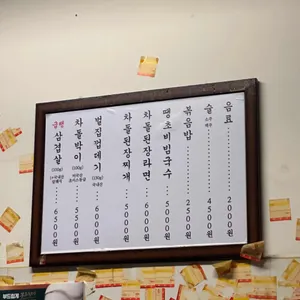 급랭 삼겹살 (100g) 6500원
차돌박이 (100g) 5500원
벌집껍데기 (100g) 국내산 6000원
차돌된장찌개 5000원
차돌된장라면 6000원
땡초비빔국수 5000원
볶음밥 2500원
술 소주 맥주 4500원
음료 2000원